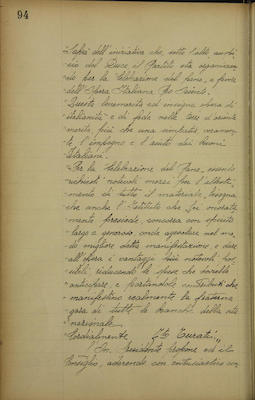 94
Sapia dell'iniziativa che, sotto l'alto auspi-
cio del Duce il Partito sta organizzan-
do per la Celebrazione del pane, a favore
dell'Opera Italiana Pro Oriente.
Questa benemerita ed insigne opera di
italianità e di fede nelle terre d'oriente
merita più che una simpatia veramen-
te l'impegno e l'aiuto dei buoni
Italiani.
Per la Celebrazione del Pane, essendo
richiesti notevoli mezzi per l'allesti-
mento di tutto il materiale, bisogna
che anche l'Istituto che Lei onorata-
mente presiede, concorra con spirito
largo e generoso onde agevolare nel mo-
do migliore detta manifestazione, e dare
all'opera i vantaggi più notevoli pos-
sibili, riducendo le spese che dovrebbe
anticipare, e portandole contributi che
manifestino realmente la fraterna
gara di tutte le branche della vita
nazionale.
Cordialmente, f.to Turati"
L'On. Presidente propone ed il
Consiglio, aderendo con entusiastico con-